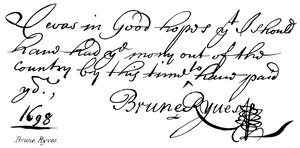 I was in Good hopes yt I should
have had ye mony out of the
country by this time to have paid
yd.,
Brune Ryves
1698
Brune Ryves